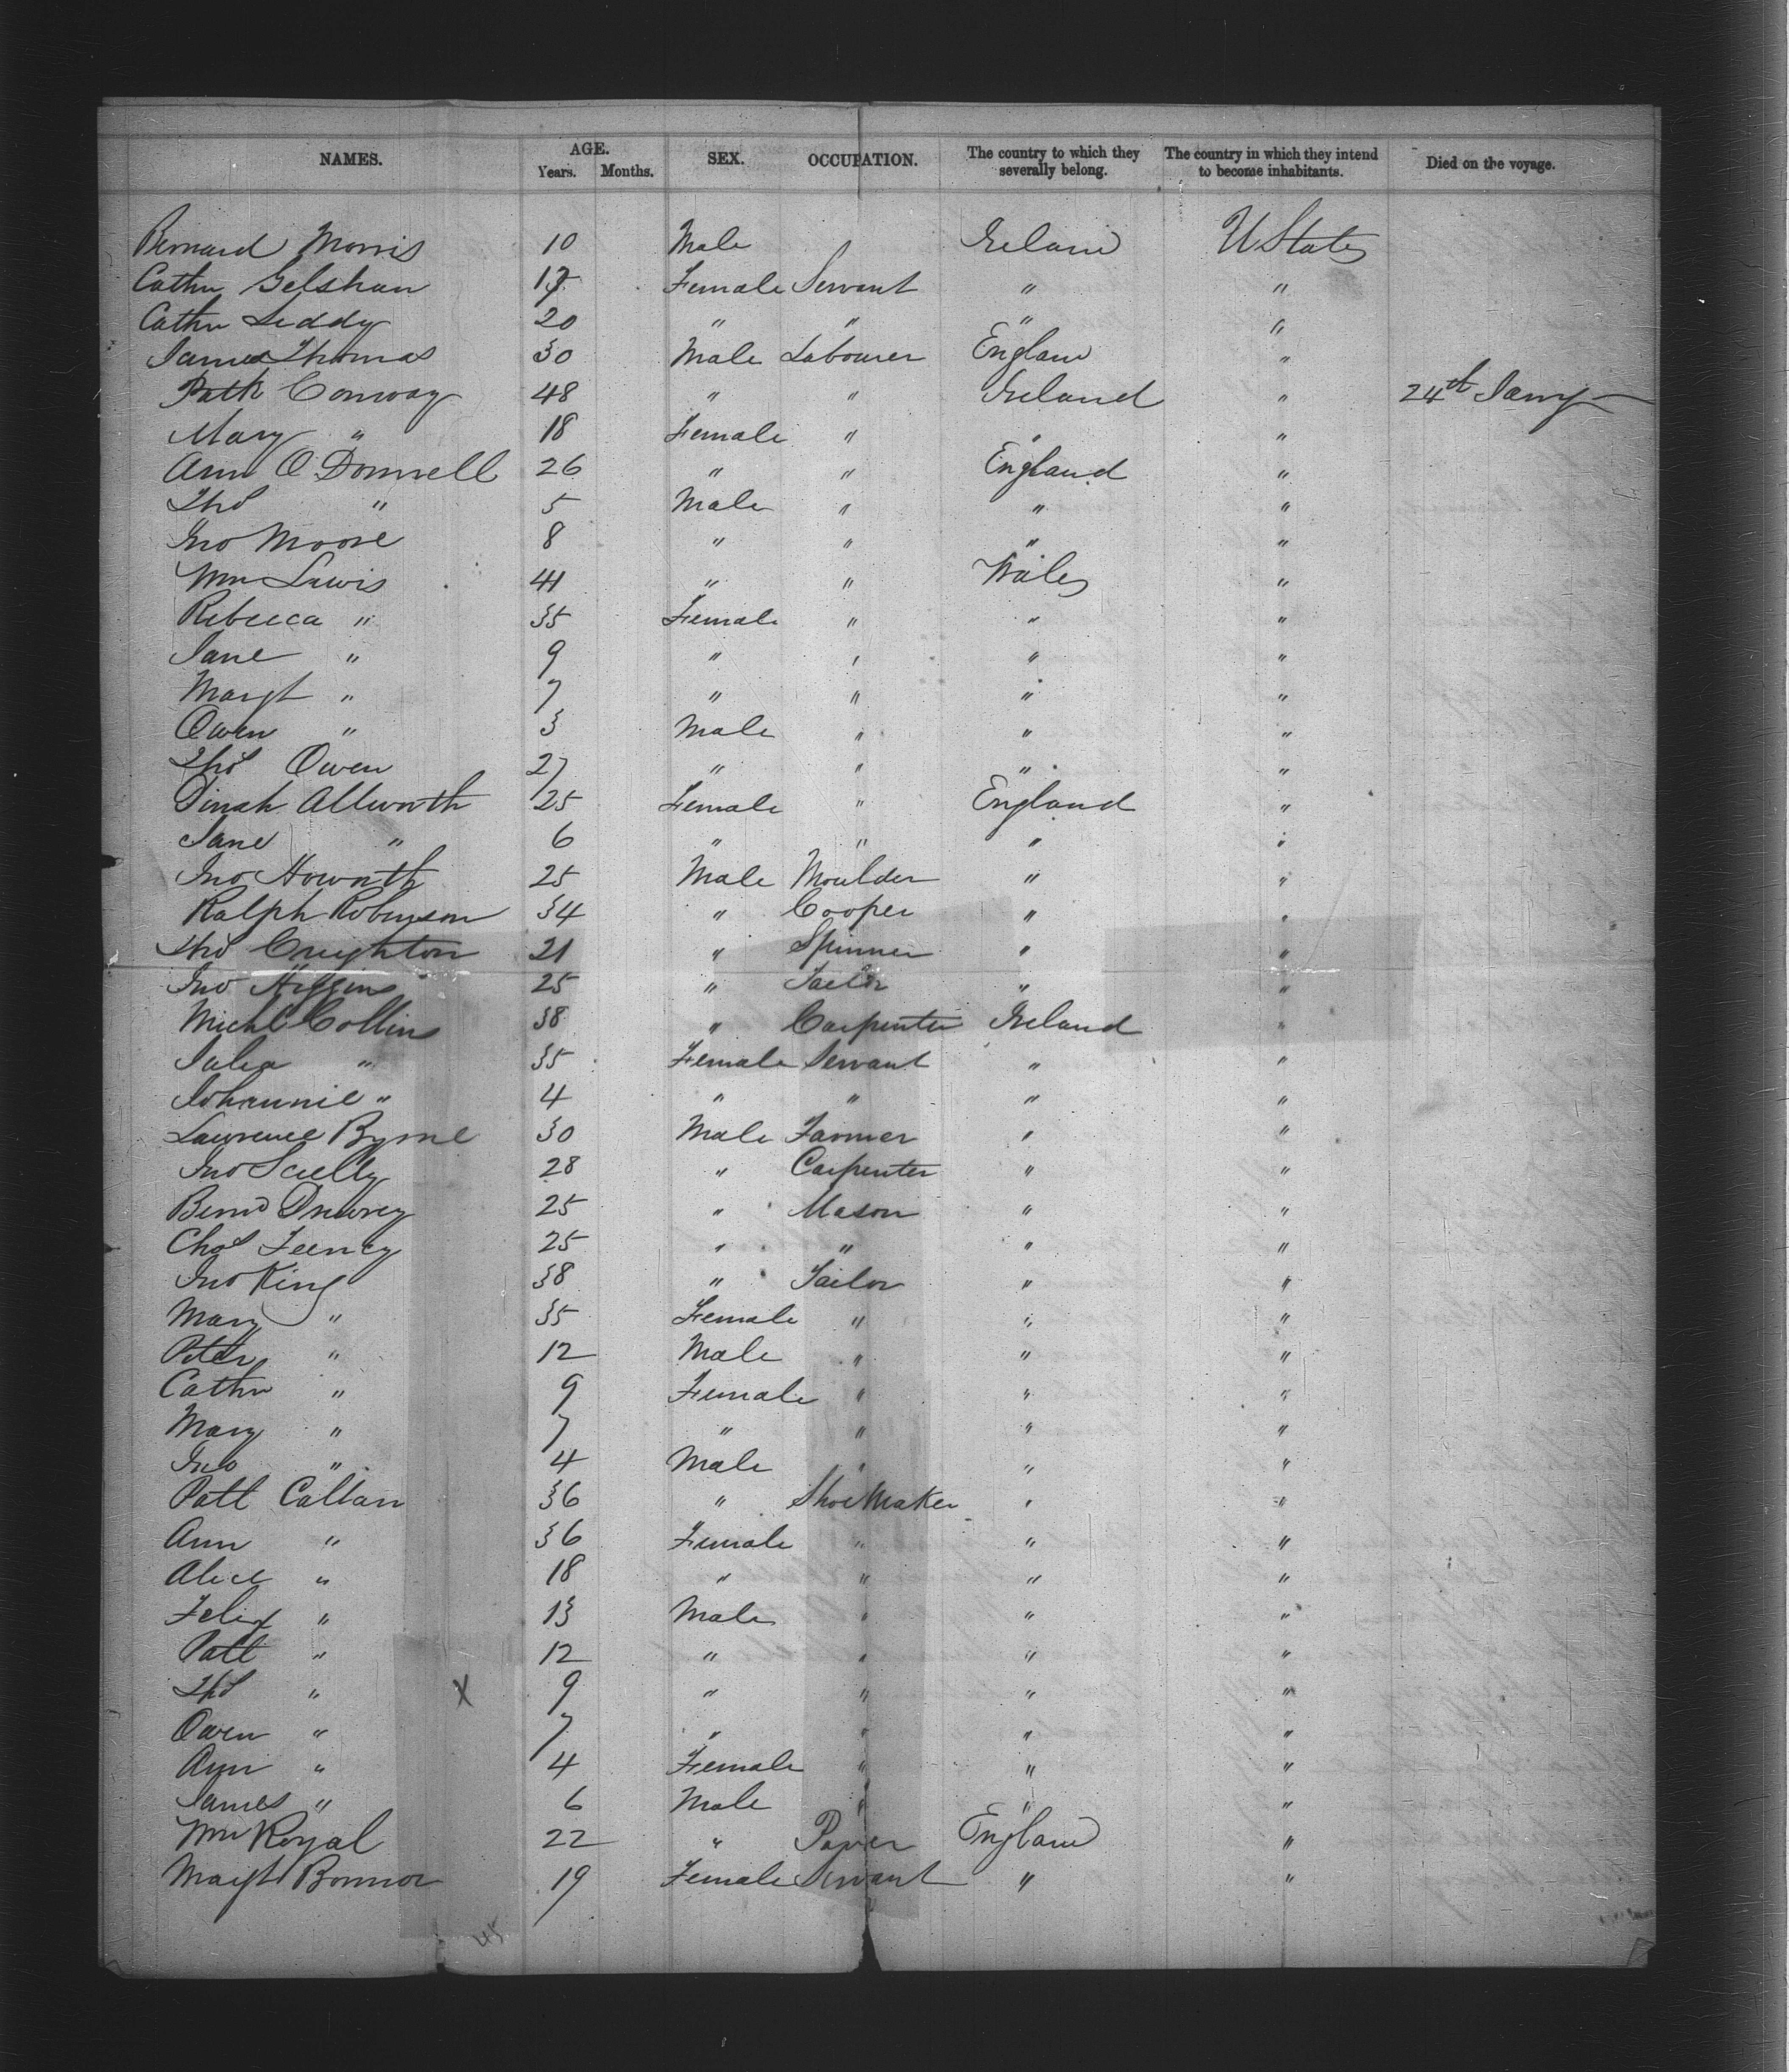 NAMES. AGE. Years. Months. SEX. OCCUPATION. The country to which they severally belong. The country in which they intend to become inhabitants. Died on the voyage.
Bernard Morris 10 Male Ireland U States
Cathn Gelshan Female Servant " "
Cathn Leddy 20 " " " "
James Thomas 30 Male Labourer England "
Patk Conway 48 " " Ireland " 24th Jany
Mary " 18 Female " " "
Ann O Donnell 26 " " England "
Thos " 5 Male " " "
Jno Moore 8 " " " "
Wm Lewis 41 " " Wales "
Rebecca " 35 Female " " "
Jane " 9 " " " "
Margt " 7 " " " "
Owen " 3 Male " " "
Thos Owen 27 " " " "
Dinah Allworth 25 Female " England "
Jane " 6 " " " "
Jno Howorth 25 Male Moulder " "
Ralph Robinson 34 " Cooper " "
Thos Creighton 21 " Spinner " "
Jno Higgins 25 " Tailor " "
Michl Collins 38 " Carpenter Ireland "
Julia " 35 Female Servant " "
Johannie " 4 " " " "
Lawrence Byrne 30 Male Farmer " "
Jno Scully 28 " Carpenter " "
Bernd Drewrey 25 " Mason " "
Chas Feeney 25 " " " "
Jno King 38 " Tailor " "
Mary " 35 Female " " "
Peter " 12 Male " " "
Cathn " 9 Female " " "
Mary " 7 " " " "
Jno " 4 Male " " "
Patt Callan 36 " Shoe Maker " "
Ann " 36 Female " " "
Alice " 18 " " " "
Felix " 13 Male " " "
Patt " 12 " " " "
Thos " X 9 " " " "
Owen " 7 " " " "
Ann " 4 Female " " "
James " 6 Male " " "
Wm Royal 22 " Paver England "
Margt Bonnor 19 Female Servant " "
45